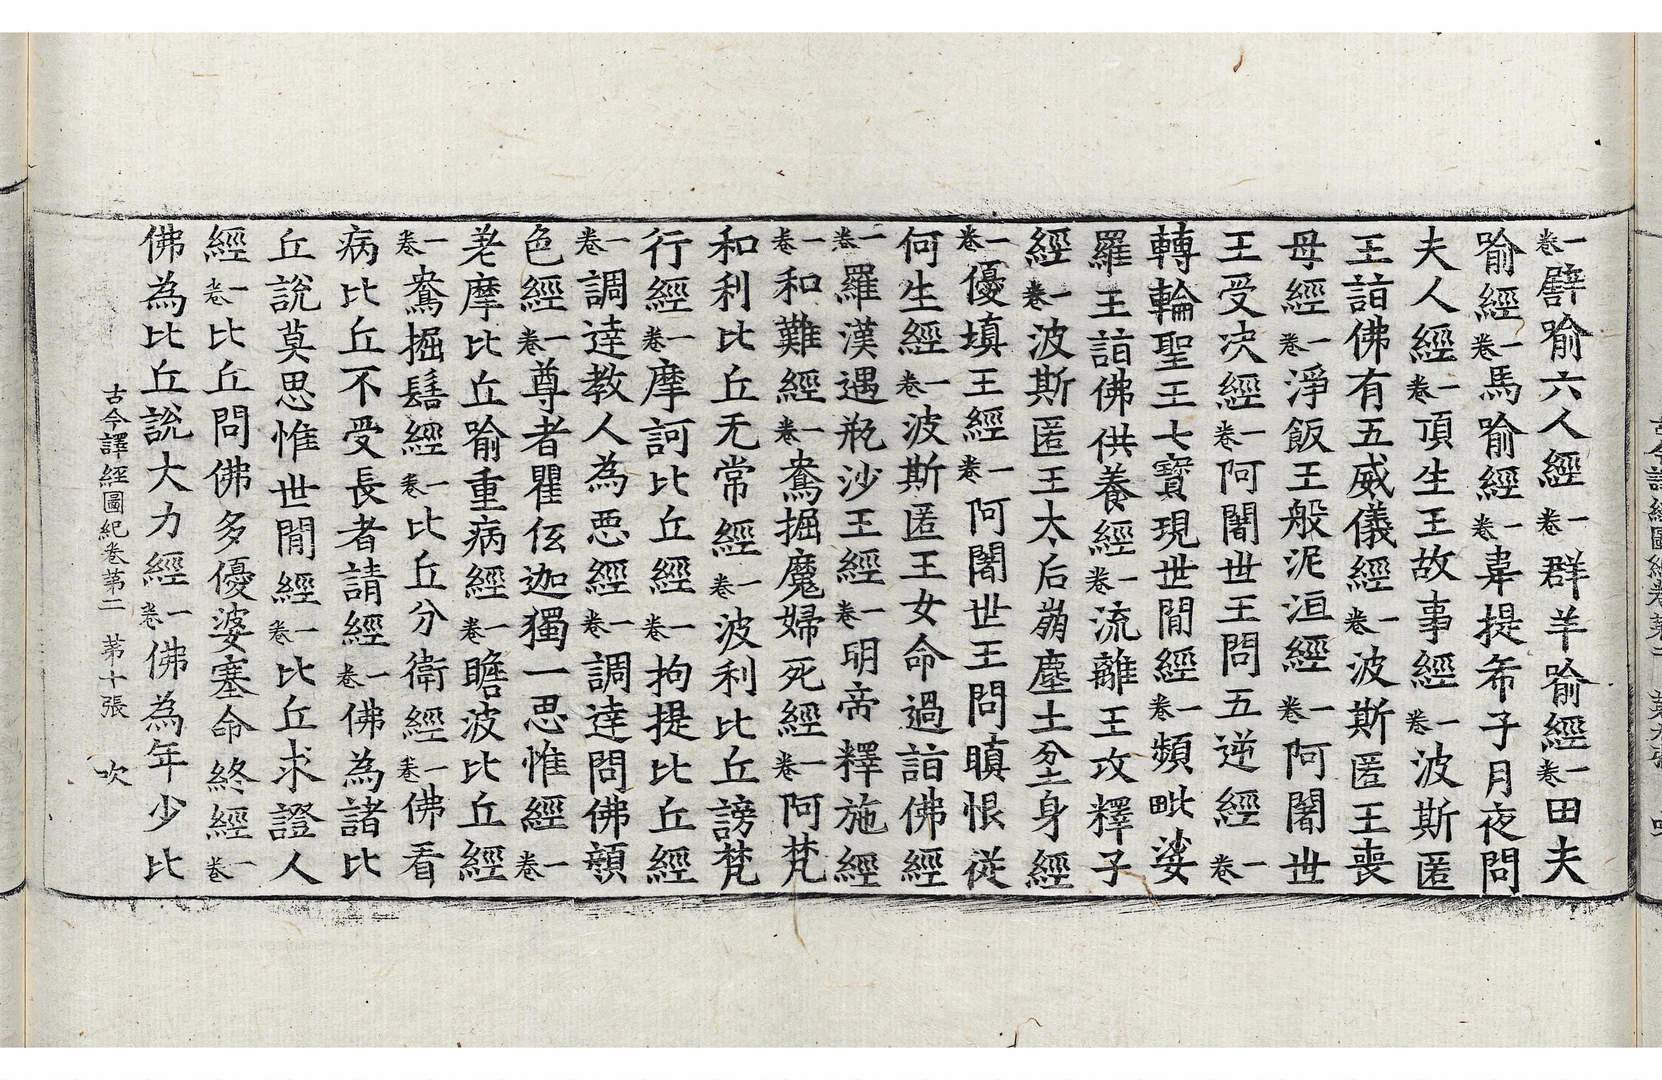 一卷譬喻六人經一卷群羊喻經一卷田夫
喻經一卷馬喻經一卷韋提希子月夜問
夫人經一卷頂生王故事經一卷波斯匿
王詣佛有五威儀經一卷波斯匿王喪
母經一卷淨飯王般泥洹經一卷阿闍世
王受決經一卷阿闍世王問五逆經一卷
轉輪聖王七寶現世閒經一卷頻毗娑
羅王詣佛供養經一卷流離王攻釋子
經一卷波斯匿王太后崩塵土坌身經
一卷優填王經一卷阿闍世王問瞋恨從
何生經一卷波斯匿王女命過詣佛經
一卷羅漢遇瓶沙王經一卷明帝釋施經
一卷和難經一卷鴦掘魔婦死經一卷阿梵
和利比丘无常經一卷波利比丘謗梵
行經一卷摩訶比丘經一卷拘提比丘經
一卷調達教人為惡經一卷調達問佛顏
色經一卷尊者瞿伭迦獨一思惟經一卷
荖摩比丘喻重病經一卷瞻波比丘經
一卷鴦掘髻經一卷比丘分衛經一卷佛看
病比丘不受長者請經一卷佛為諸比
丘說莫思惟世閒經一卷比丘求證人
經一卷比丘問佛多優婆塞命終經一卷
佛為比丘說大力經一卷佛為年少比
古今譯經圖紀卷第二 第十張 吹